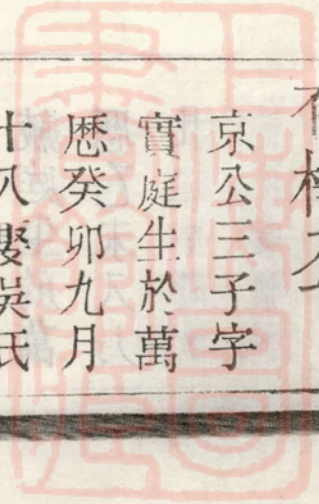 京公三子字
實庭生於萬
歷癸卯九月
十八娶吳氏